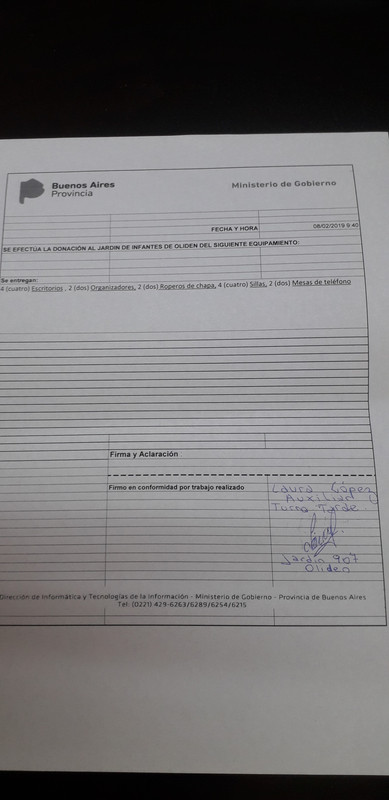 Buenos Aires
Provincia
Ministerio de Gobierno
FECHA Y HORA 08/02/2019 9:40
SE EFECTÚA LA DONACIÓN AL JARDIN DE INFANTES DE OLIDEN DEL SIGUIENTE EQUIPAMIENTO:
Se entregan:
4 (cuatro) Escritorios , 2 (dos) Organizadores, 2 (dos) Roperos de chapa, 4 (cuatro) Sillas, 2 (dos) Mesas de teléfono
Firma y Aclaración
Firmo en conformidad por trabajo realizado
Laura López
Auxiliar
Turno Tarde
Jardín 907
Oliden
Dirección de Informática y Tecnologías de la Información - Ministerio de Gobierno - Provincia de Buenos Aires
Tel: (0221) 429-6263/6289/6254/6215